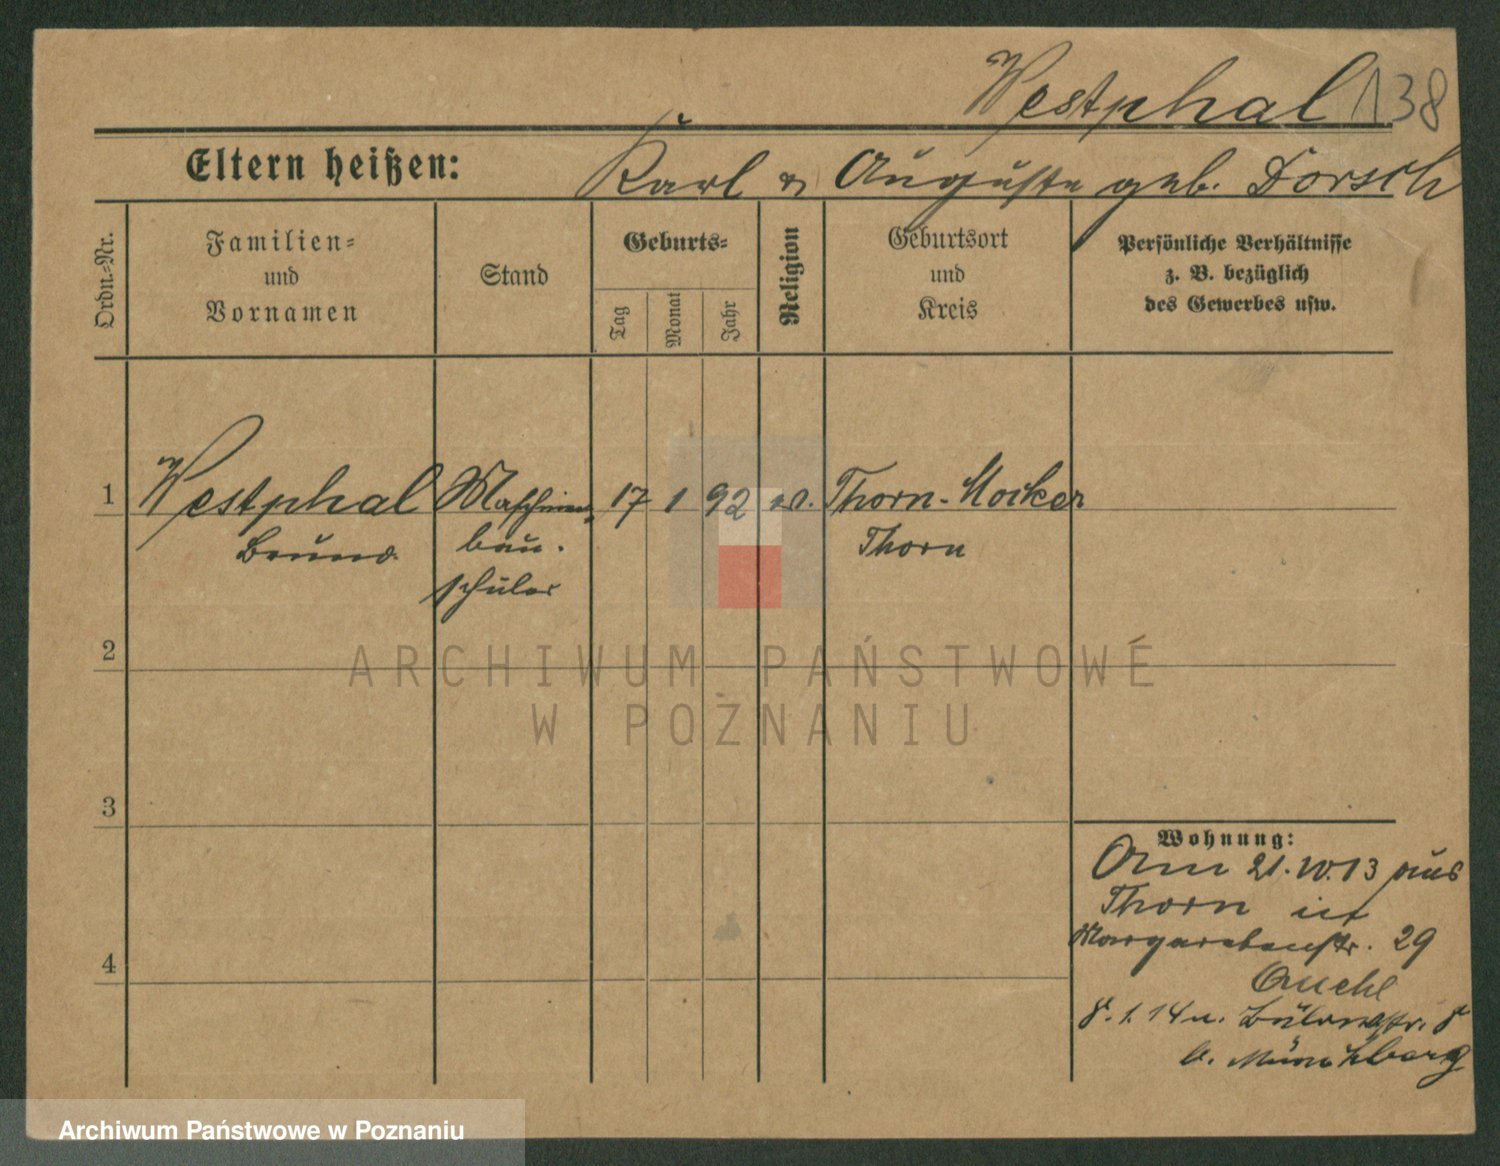 Westphal 138
Eltern heißen: Karl & Auguste geb. Dorsch
Ordn.-Nr.
Familien-
und
Vornamen
Stand
Geburts-
Tag
Monat
Jahr
Religion
Geburtsort
und
Kreis
Persönliche Verhältnisse
z. B. bezüglich
des Gewerbes usw.
1 Westphal Maschinen- 17 1 92 ev. Thorn-Mocker
Bruno bau- Thorn
schüler
2
3
4
Wohnung:
Am 21.10.13 aus
Thorn in
Margaretenstr. 29
8.1.14 n. Bülowstr. 8
b. Münchberg
ARCHIWUM PAŃSTWOWE
W POZNANIU
Archiwum Państwowe w Poznaniu